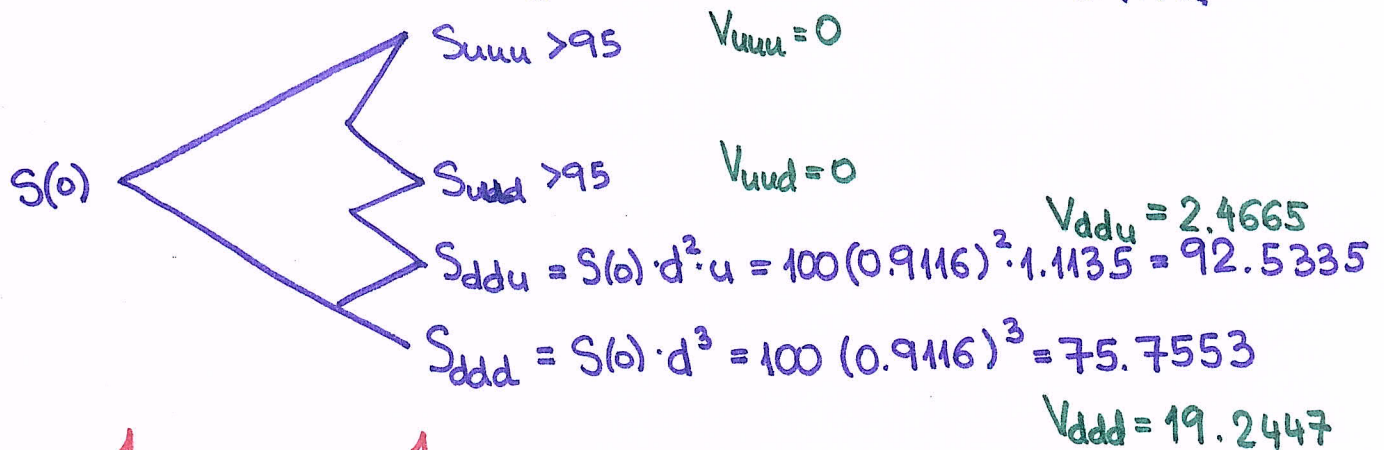 Suuu >95 Vuuu = 0
S(0) Sudd >95 Vuud = 0
Vddu = 2.4665
Sddu = S(0)·d²·u = 100(0.9116)²·1.1135 = 92.5335
Sddd = S(0)·d³ = 100 (0.9116)³ = 75.7553
Vddd = 19.2447